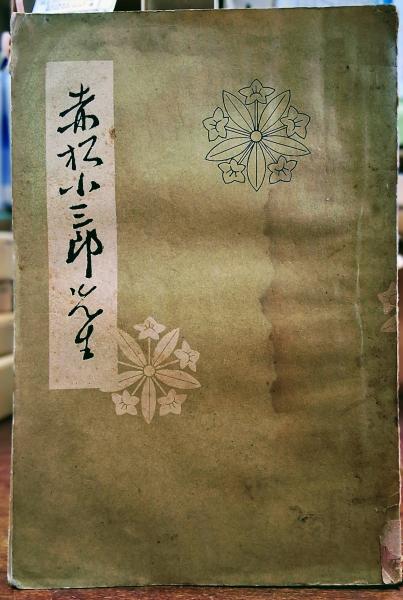 赤松小三郎先生